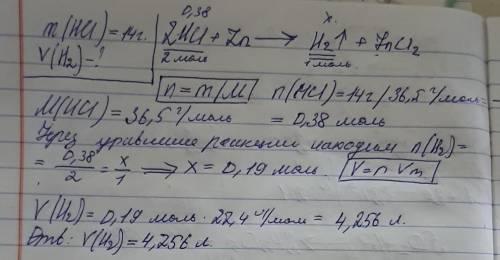 0,38 x.
m(HCl)=14г. 2HCl + Zn → H₂↑ + ZnCl₂
V(H₂)-? 2 моль 1 моль.
n=m/M n(HCl)=14г/36,5 г/моль=
M(HCl)=36,5 г/моль = 0,38 моль
Через уравнение реакции находим n(H₂)=
= 0,38/2 = x/1 ⟹ x = 0,19 моль. V=n·Vm.
V(H₂)=0,19 моль · 22,4 л/моль = 4,256 л.
Отв: V(H₂)=4,256 л.